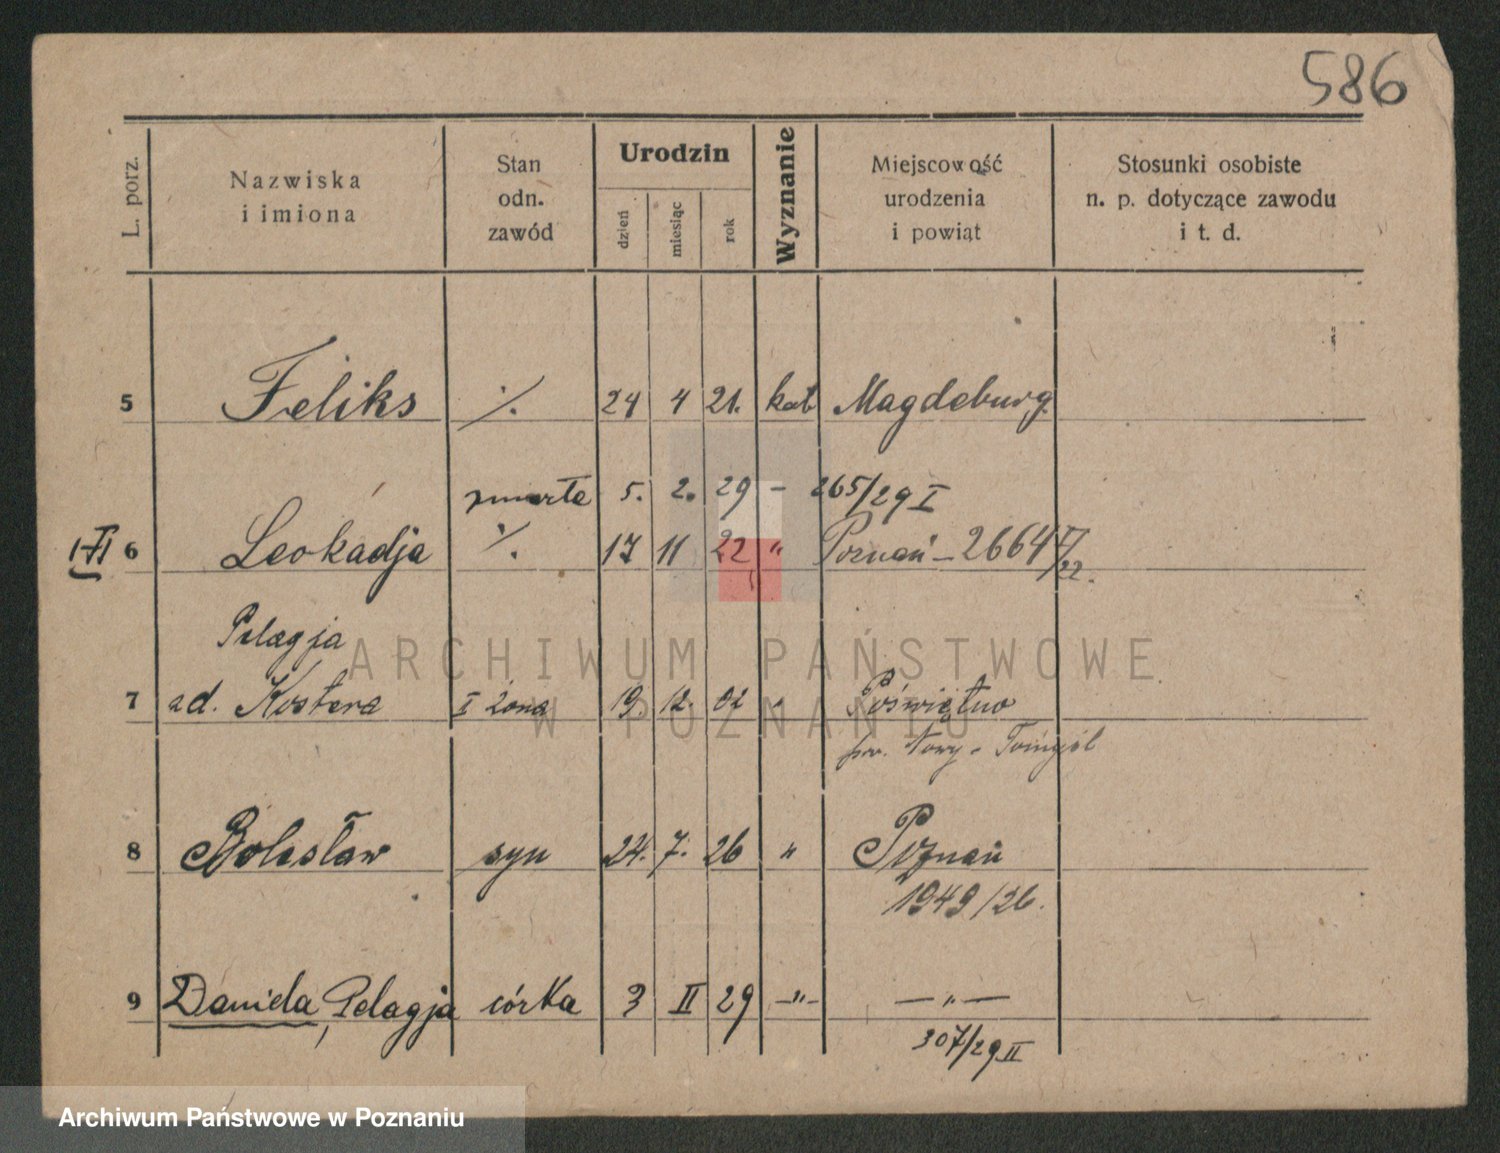 586
L. porz.
Nazwiska
i imiona
Stan
odn.
zawód
Urodzin
dzień
miesiąc
rok
Wyznanie
Miejscowość
urodzenia
i powiąt
Stosunki osobiste
n. p. dotyczące zawodu
i t. d.
5 Feliks ·/. 24 4 21. kat Magdeburg.
zmarła 5. 2. 29 - 265/29 I
6 Leokadja ·/. 17 11 22 " Poznań - 2664 II/22.
Pelagja
7 ad. Kostera I żona 19. 12. 02 " Poświętno
pow. Nowy - Tomyśl
8 Bolesław syn 24. 7. 26 " Poznań
1949/26.
9 Daniela, Pelagja córka 3 II 29 -"- -"-
307/29 II
ARCHIWUM PAŃSTWOWE
W POZNANIU
Archiwum Państwowe w Poznaniu